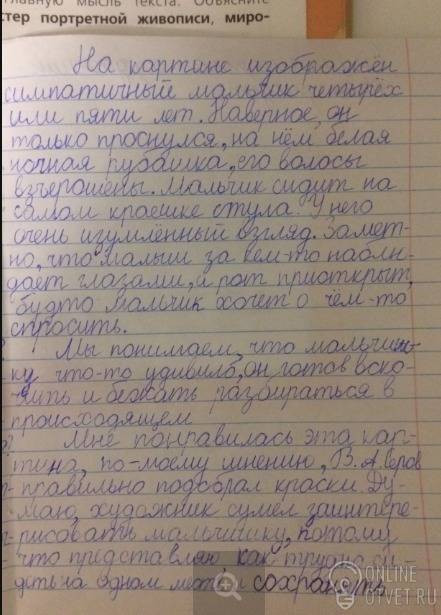 главную мысль текста. Объясните
стер портретной живописи, миро-
На картине изображён
симпатичный мальчик четырёх
или пяти лет. Наверное, он
только проснулся, на нём белая
ночная рубашка, его волосы
взъерошены. Мальчик сидит на
самом краешке стула. У него
очень изумлённый взгляд. Замет-
но, что малыш за кем-то наблю-
дает глазами, и рот приоткрыт,
будто мальчик хочет о чём-то
спросить.
Мы понимаем, что мальчиш-
ку что-то удивило, он готов вско-
чить и бежать разбираться в
происходящем
Мне понравилась эта кар-
тина, по-моему мнению, В. А. Серов
правильно подобрал краски. Ду-
маю, художник сумел заинтере-
рисовать мальчишку, потому
что представляю как трудно си-
деть на одном месте и сохранять
ONLINE
OTVET.RU